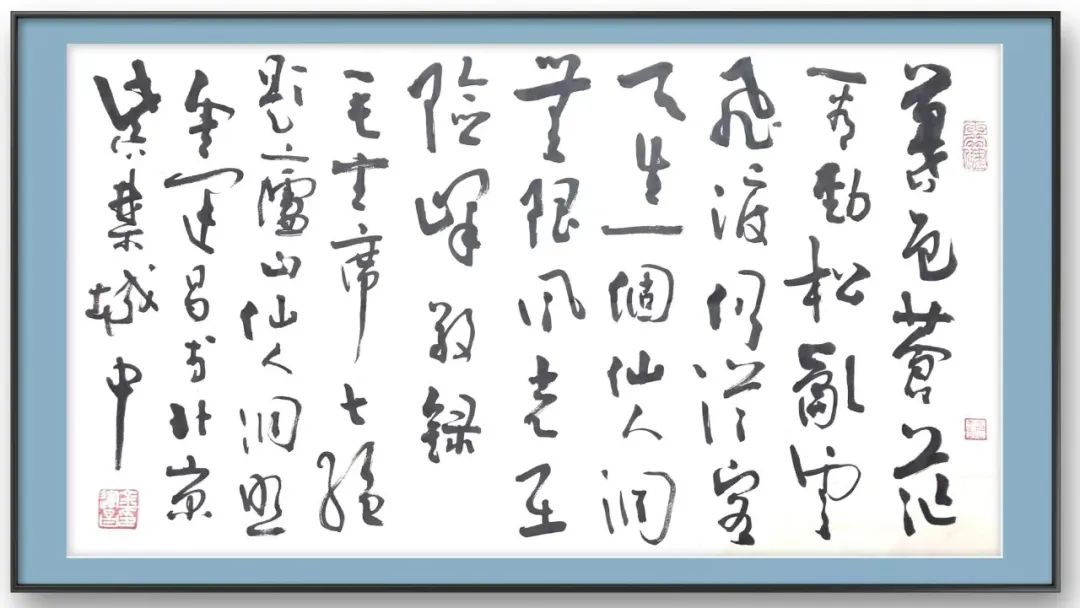 暮色蒼茫
看勁松亂雲
飛渡仍從容
天生一個仙人洞
無限風光在
險峰 敬録
毛主席七絕
題廬山仙人洞照
金運昌書北京
紫禁城中